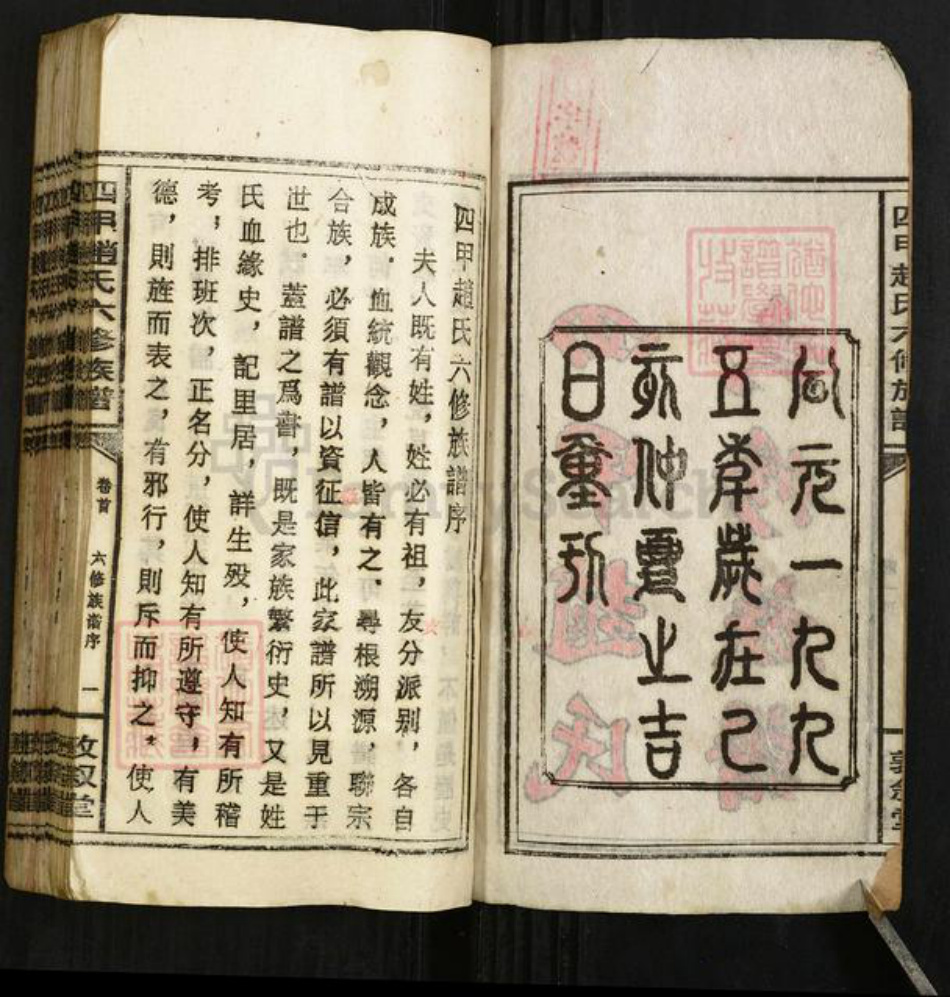 四甲趙氏六修族譜
公元一九九
五年歲在乙
亥仲夏之吉
日重刊
四甲趙氏六修族譜序
夫人既有姓，姓必有祖，友分派别，各自
成族．血統觀念，人皆有之．尋根溯源，聯宗
合族，必須有譜以資征信，此家譜所以見重于
世也．蓋譜之爲書，既是家族繁衍史，又是姓
氏血緣史，記里居，詳生殁，使人知有所稽
考；排班次，正名分，使人知有所遵守，有美
德，則旌而表之，有邪行，則斥而抑之。使人
四甲趙氏六修族譜
卷首
六修族譜序
一
敦叙堂
FamilySearch